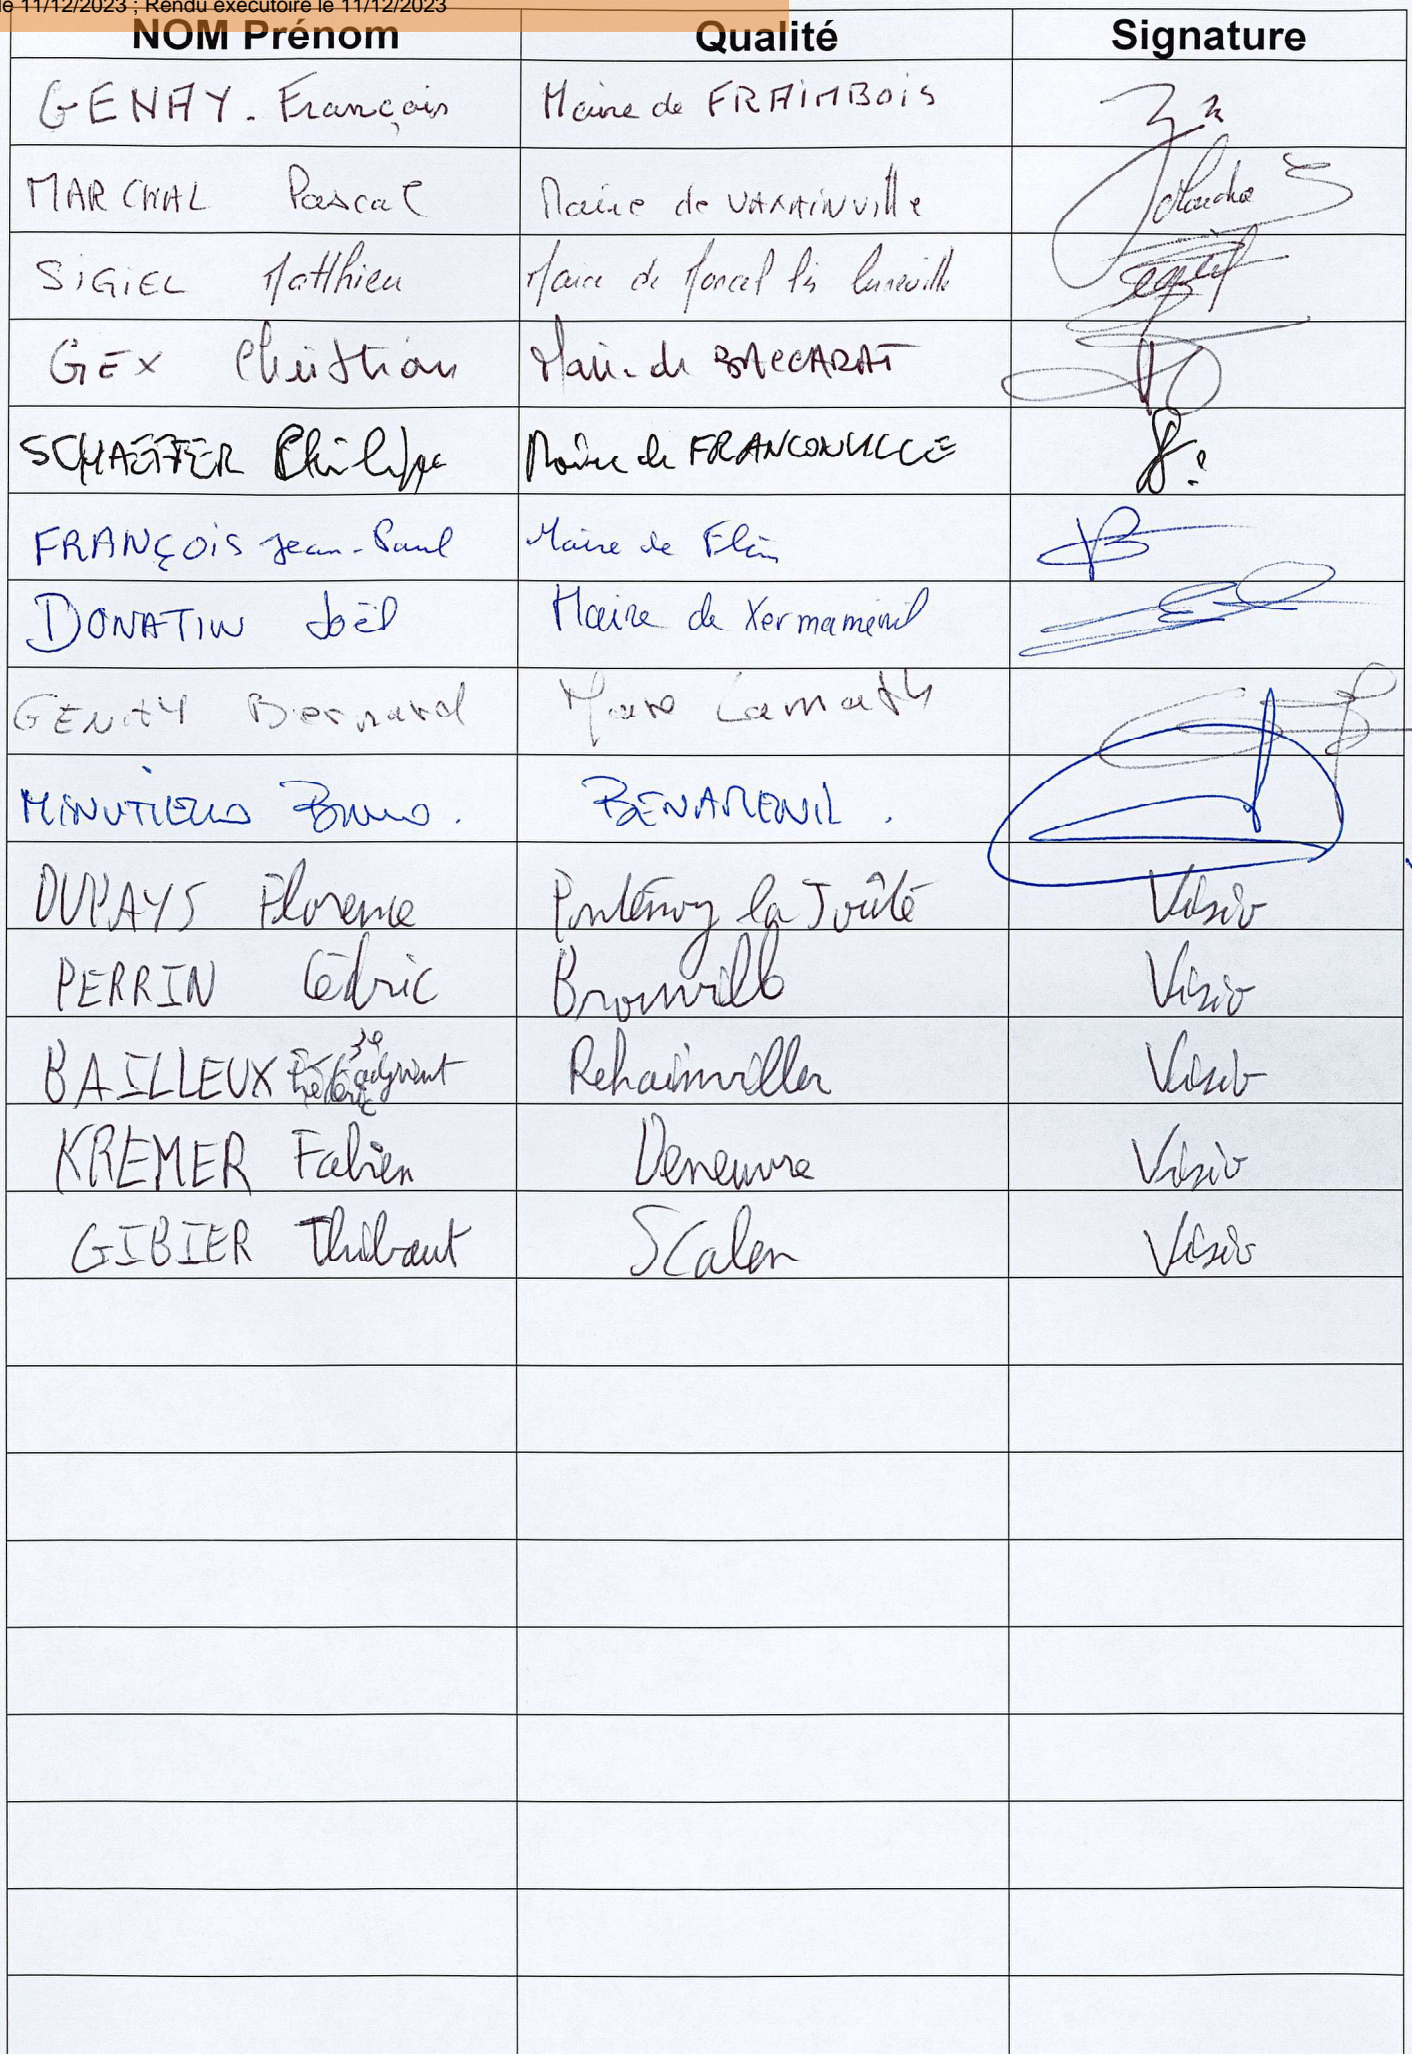 le 11/12/2023 ; Rendu exécutoire le 11/12/2023
NOM Prénom Qualité Signature
GENAY. François Maire de FRAIMBOIS
MARCHAL Pascal Maire de VAXAINVille
SiGiEL Matthieu Maire de Moncel lès Lunéville
GEX Christian Maire de BACCARAT
SCHAEFFER Philippe Maire de FRANCONVILLE
FRANÇOIS Jean-Paul Maire de Flin
DONATIN Joël Maire de Xermaménil
GENAY Bernard Lamath
MINUTIELLO Bruno. BENAMENIL.
DUPAYS Florence Fontenoy la Joûte Visio
PERRIN Cédric Brouville Visio
BAILLEUX 3e adjoint Rehainviller Visio
KREMER Fabien Deneuvre Visio
GIBIER Thibaut Visio